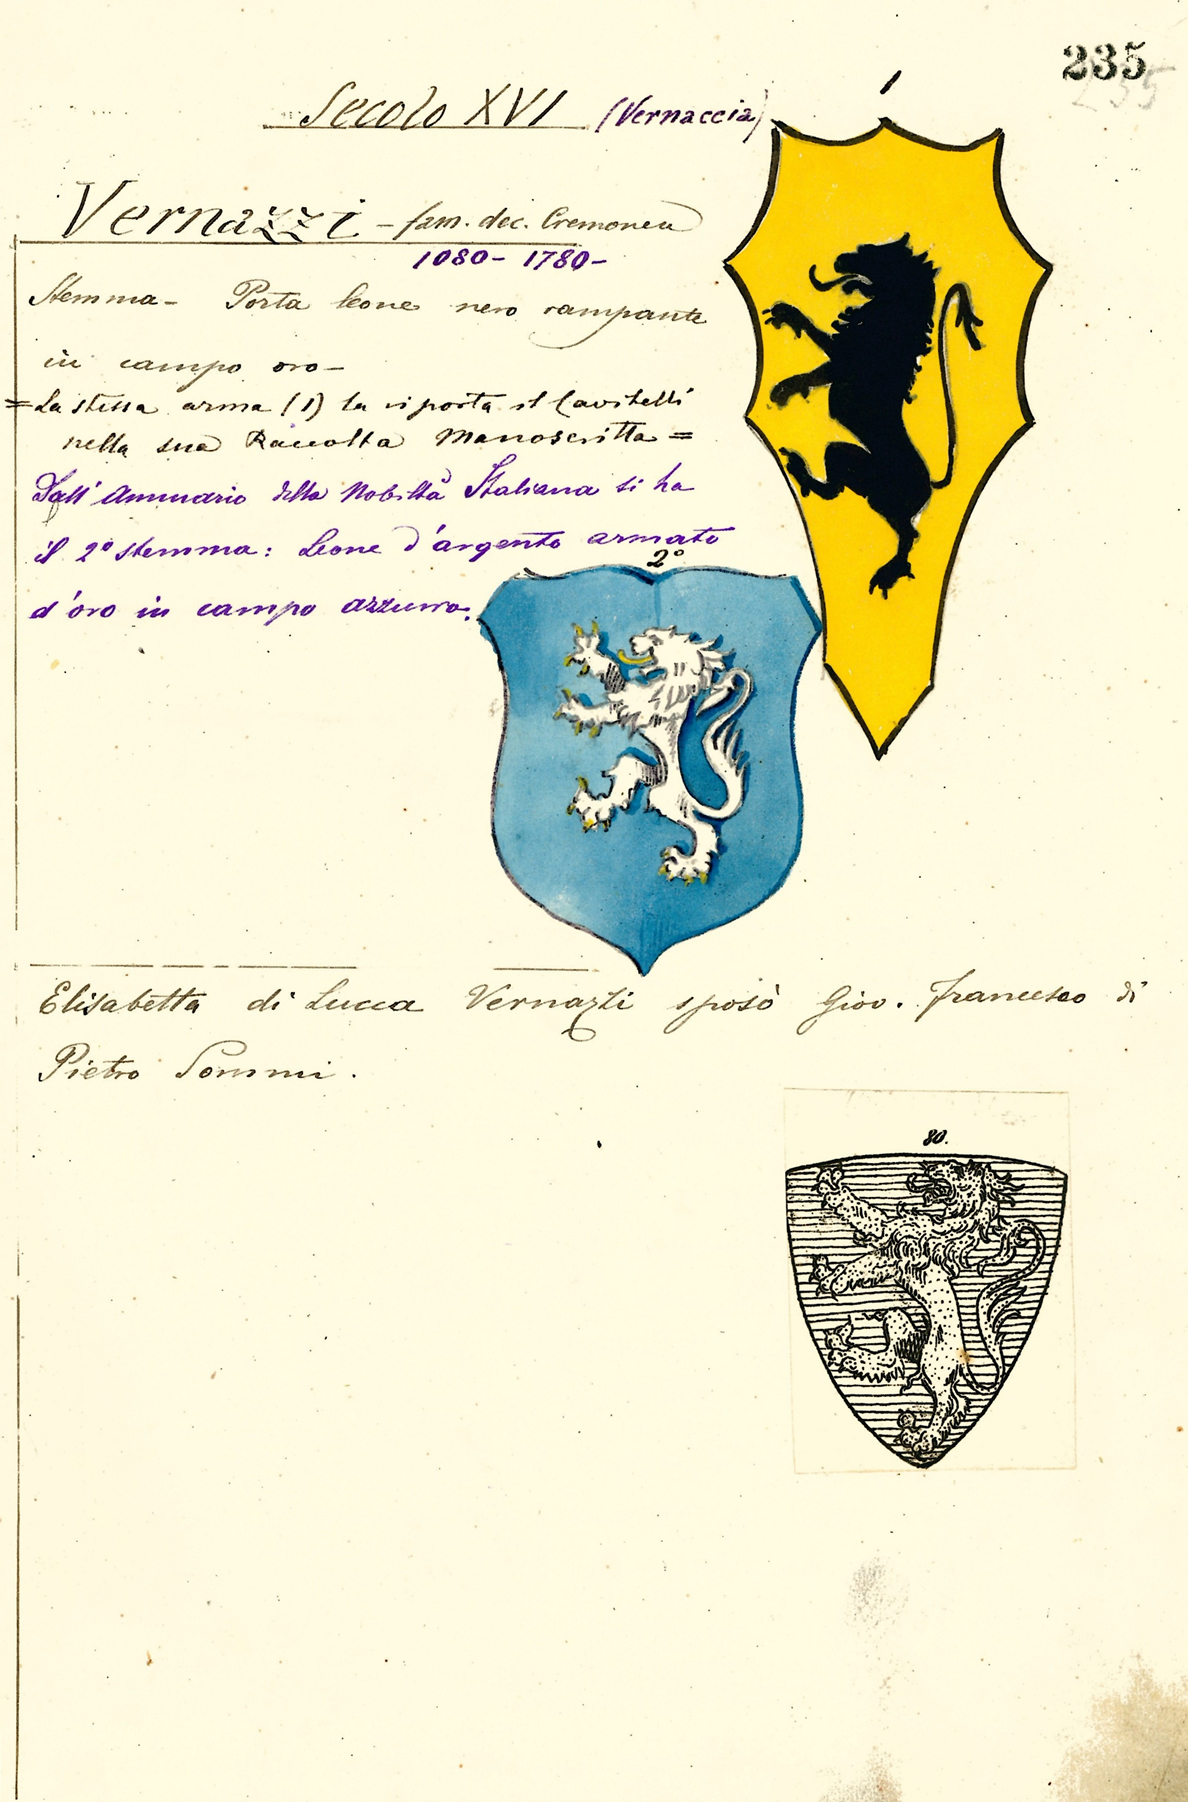 235
235
Secolo XVI (Vernaccia)
1
Vernazzi - fam. dec. Cremonese
1080 - 1780 -
Stemma - Porta leone nero rampante
in campo oro -
= La stessa arma (1) la riporta il Cavitelli
nella sua Raccolta Manoscritta =
Dall' Annuario della Nobiltà Italiana si ha
il 2° stemma: Leone d'argento armato
2°
d'oro in campo azzurro.
Elisabetta di Lucca Vernazzi sposò Giov. Francesco di
Pietro Sommi.
80.